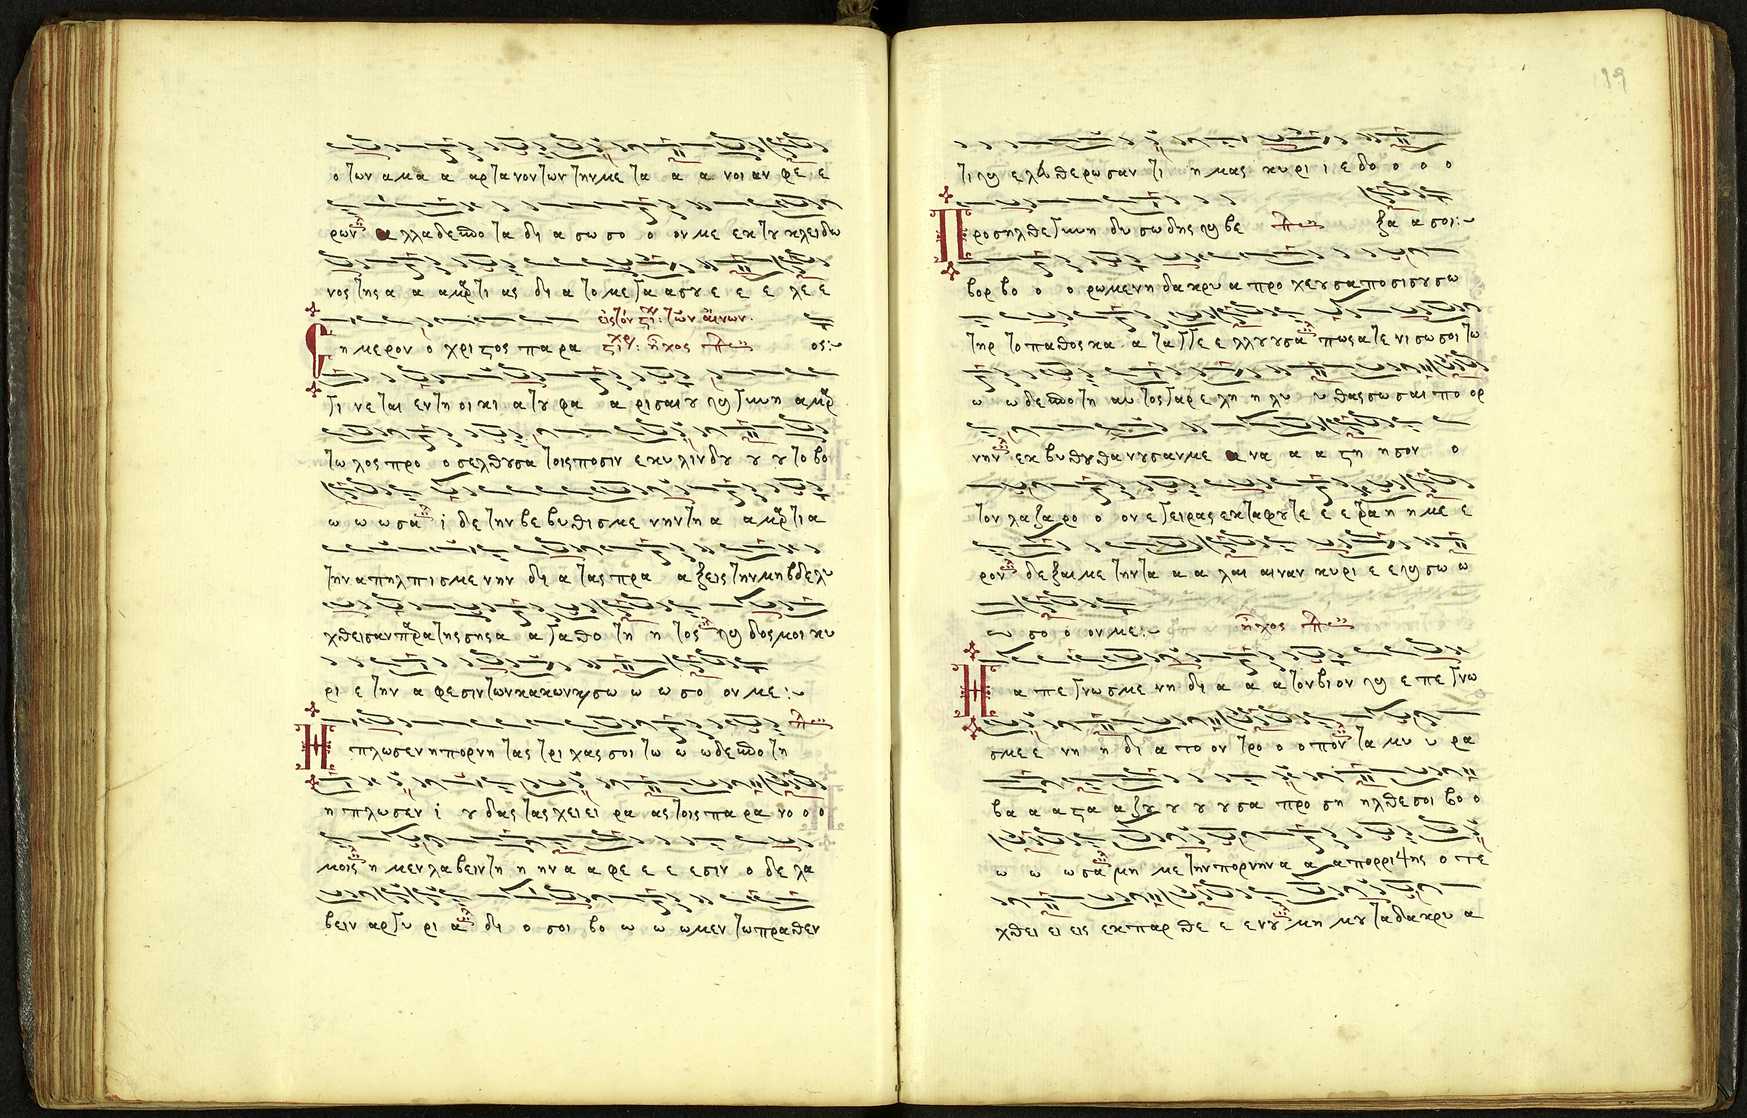 ο των α μα α αρτα νον των την με τα α α νοι αν φε ε
ρων α λλα δεσπο τα δι α σω σο ο ον με εκ του κλει δω
νος της α α αμαρτι ας δι α το με γα α σου ε ε ε λε ε
εις τον στιχ: των αινων. ος:
Ση μερον ο χριστος παρα στιχηρ: ηχος πλ
γι νε ται εν τη οι κι α του φα α ρι σαι ου και γυνη αμαρ
τω λος προ ο σελ θουσα τοις ποσιν ε κυ λιν δου ου ου το βο
ω ω ω σα ι δε την βε βυ θισμε νην τη α αμαρτι α
την απηλπισμε νην δι α τας πρα α ξεις την μη βδελυ
χθεισαν παρα της σης α α γα θο τη η τος και δος μοι κυ
ρι ε την α φεσιν των κακων και σω ω ω σο ον με:
πλ
Η πλωσεν η πορνη τας τρι χας σοι τω ω ω δεσπο τη
η πλωσεν ι ου δας τας χει ει ρα ας τοις πα ρα νο ο ο
μοις η μεν λαβειν τη η ην α α φε ε ε εσιν ο δε λα
βειν αργυ ρι α δι ο σοι βο ω ω ωμεν τω πραθεν
19
τι και ελευθερωσαν τι η μας κυ ρι ι ε δο ο ο ο
Προσηλθε γυνη δυ σω δης και βε πλ ξα α σοι:
βορ βο ο ο ρωμενη δακρυ α προ χεουσα ποσι σου σω
τηρ το παθος κα α τα γγε ε λλουσα πως α τε νι σω σοι τω
ω ω δεσποτη αυ τος γαρ ε λη η λυ υ θας σωσαι πο ορ
νην εκ βυθου θανουσαν με α να α α στη ησον ο
τον λαζα ρο ο ον ε γειρας εκ ταφου τε ε ε τρα η η με ε
ρον δεξαι με την τα α α λαι αιναν κυρι ε ε και σω ω
ω σο ο ον με: ηχος πλ
Η α πε γνωσμε νη δι α α α τον βιον και ε πε γνω
σμε ε νη η δι α το ον τρο ο ο πον τα μυ υ ρα
βα α α στα α ζου ου ου ουσα προ ση ηλθε σοι βο ο
ω ω ωσα μη με την πορνην α α απορριψης ο τε
χθει ει εις εκ παρ θε ε ε νου μη μου τα δακρυ α